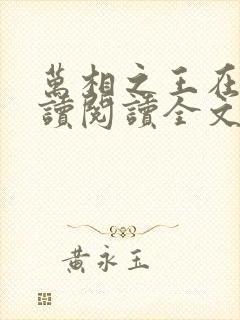 萬相之王在
讀閱讀全文
黃永玉